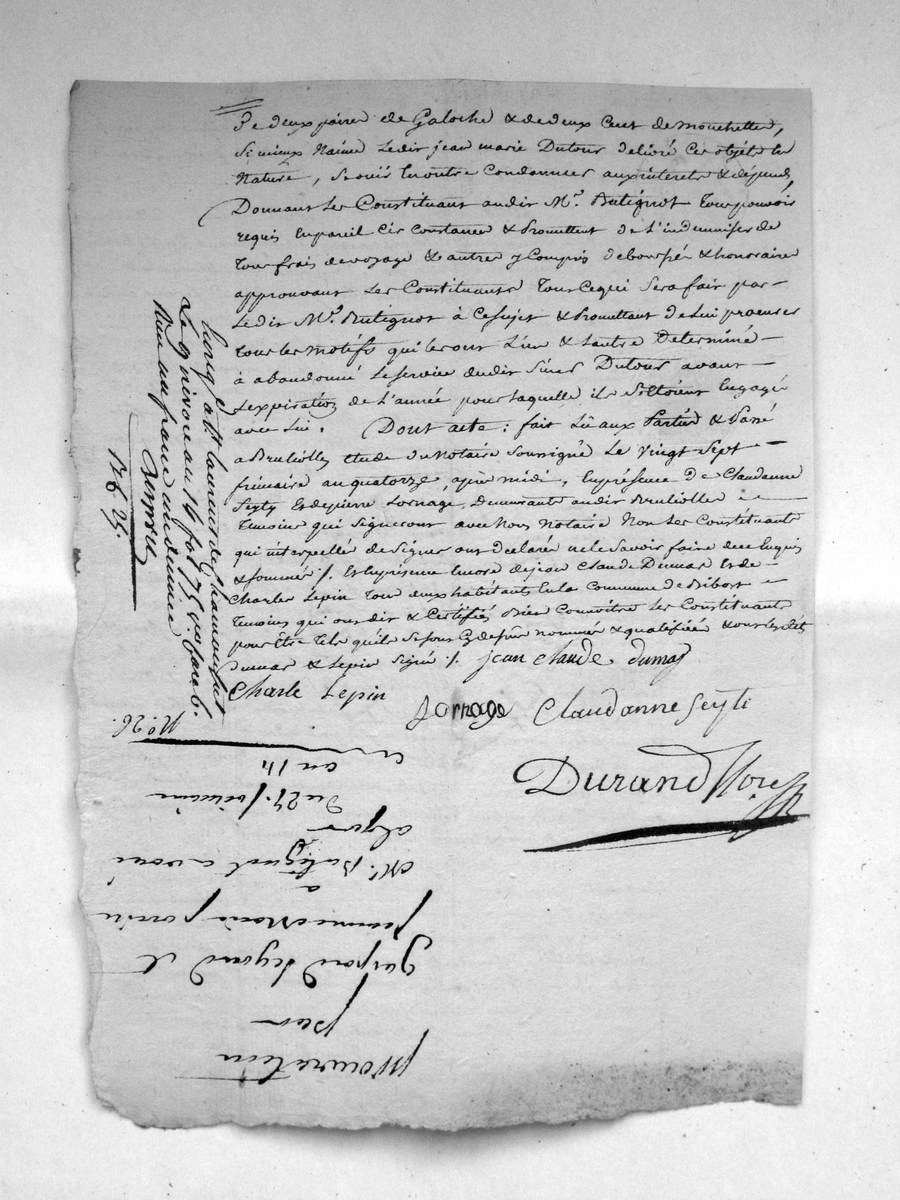 de deux paires de Galoche & de deux Cent de mouchettes,
Si mieux N'aime Ledit jean marie Dutour delivré Ces objets En
Nature, Se ouir En outre Condonner aux interets & dépends,
Donnant Les Constituant audit Mr. Butignot Tout pouvoir
requis En pareil Circonstance & Promettent de L'indemniser de
Tous frais de voyage & autres y Compris deboursé & honoraire
approuvant Les Constituants Tout Ce qui Sera fait par
Ledit Mr. Butignot à Ce Sujet & Promettant de Lui procurer
Tous les motifs qui les ont L'un & L'autre Determiné
à abandonné Le Service dudit Sieur Dutour avant
L'expiration de L'année pour laquelle ils S'etoient Engagé
avec Lui. Dont acte: fait Lû aux Parties & Passé
a Brulioles Etude du Notaire Soussigné Le vingt Sept
frimaire an quatorze, après midi, En présence de Claudanne
Seyty Et de pierre Jornage, Demeurants audit Brulioles
Temoins qui Signeront avec Nous Notaire Non Les Constituants
qui interpellés de Signer ont Declaré ne le Savoir faire de ce Enquis
& Sommé ./. Et En présence Encore de jean Claude Dumas Et de
Charles Lepin Tous deux habitants En la Commune de Bibost
Temoins qui ont dit & Certifiés Bien Connoitre Les Constituants
pour être Tels qu'ils Se Sont Cy dessus nommés & qualifiés & ont Lesdits
Dumas & Lepin Signé ./. jean claude dumas
Charle Lepin
Jornage Claudanne Seyti
Durand Nore
Enreg. a St. Laurent de Chamousset
Le 9 nivose an 14 fol. 75 Vo. Case 6.
Reçu un franc un decime
1 f. 6 25.
No. 26.
procuration
par
gaspard Seyard et
jeanne Marie
a
Mr. Butignot avoué
a Lyon
Du 27. frimaire
an 14